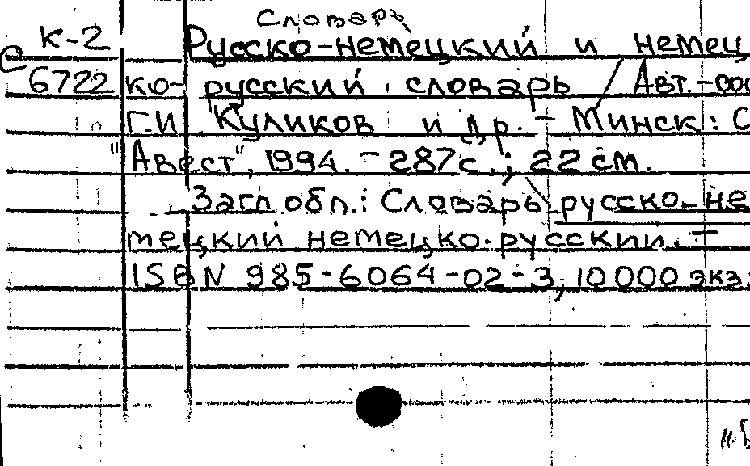 Словарь
К-2 Русско-немецкий и немец
6722 ко-русский словарь / Авт.-сос
Г.И. Куликов и др. - Минск: С
"Авест", 1994. - 287с.; 22 см.
Загл. обл.: Словарь русско-не
мецкий немецко-русский. -
ISBN 985-6064-02-3, 10 000 экз.